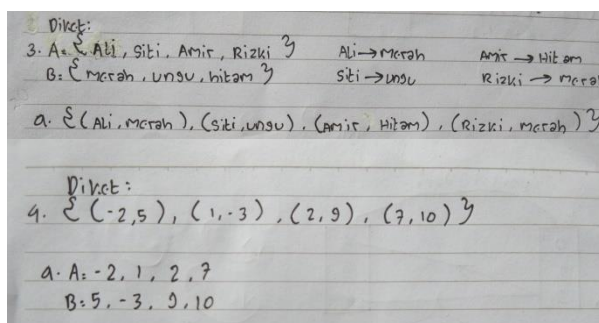 Diket:
3. A = { Ali, Siti, Amir, Rizki } Ali → merah Amir → Hitam
B = { merah, ungu, hitam } Siti → ungu Rizki → mera
a. {(Ali, merah), (Siti, ungu), (Amir, Hitam), (Rizki, merah)}
Diket:
4. { (-2,5), (1,-3), (2,9), (7,10) }
a. A = -2, 1, 2, 7
B = 5, -3, 9, 10